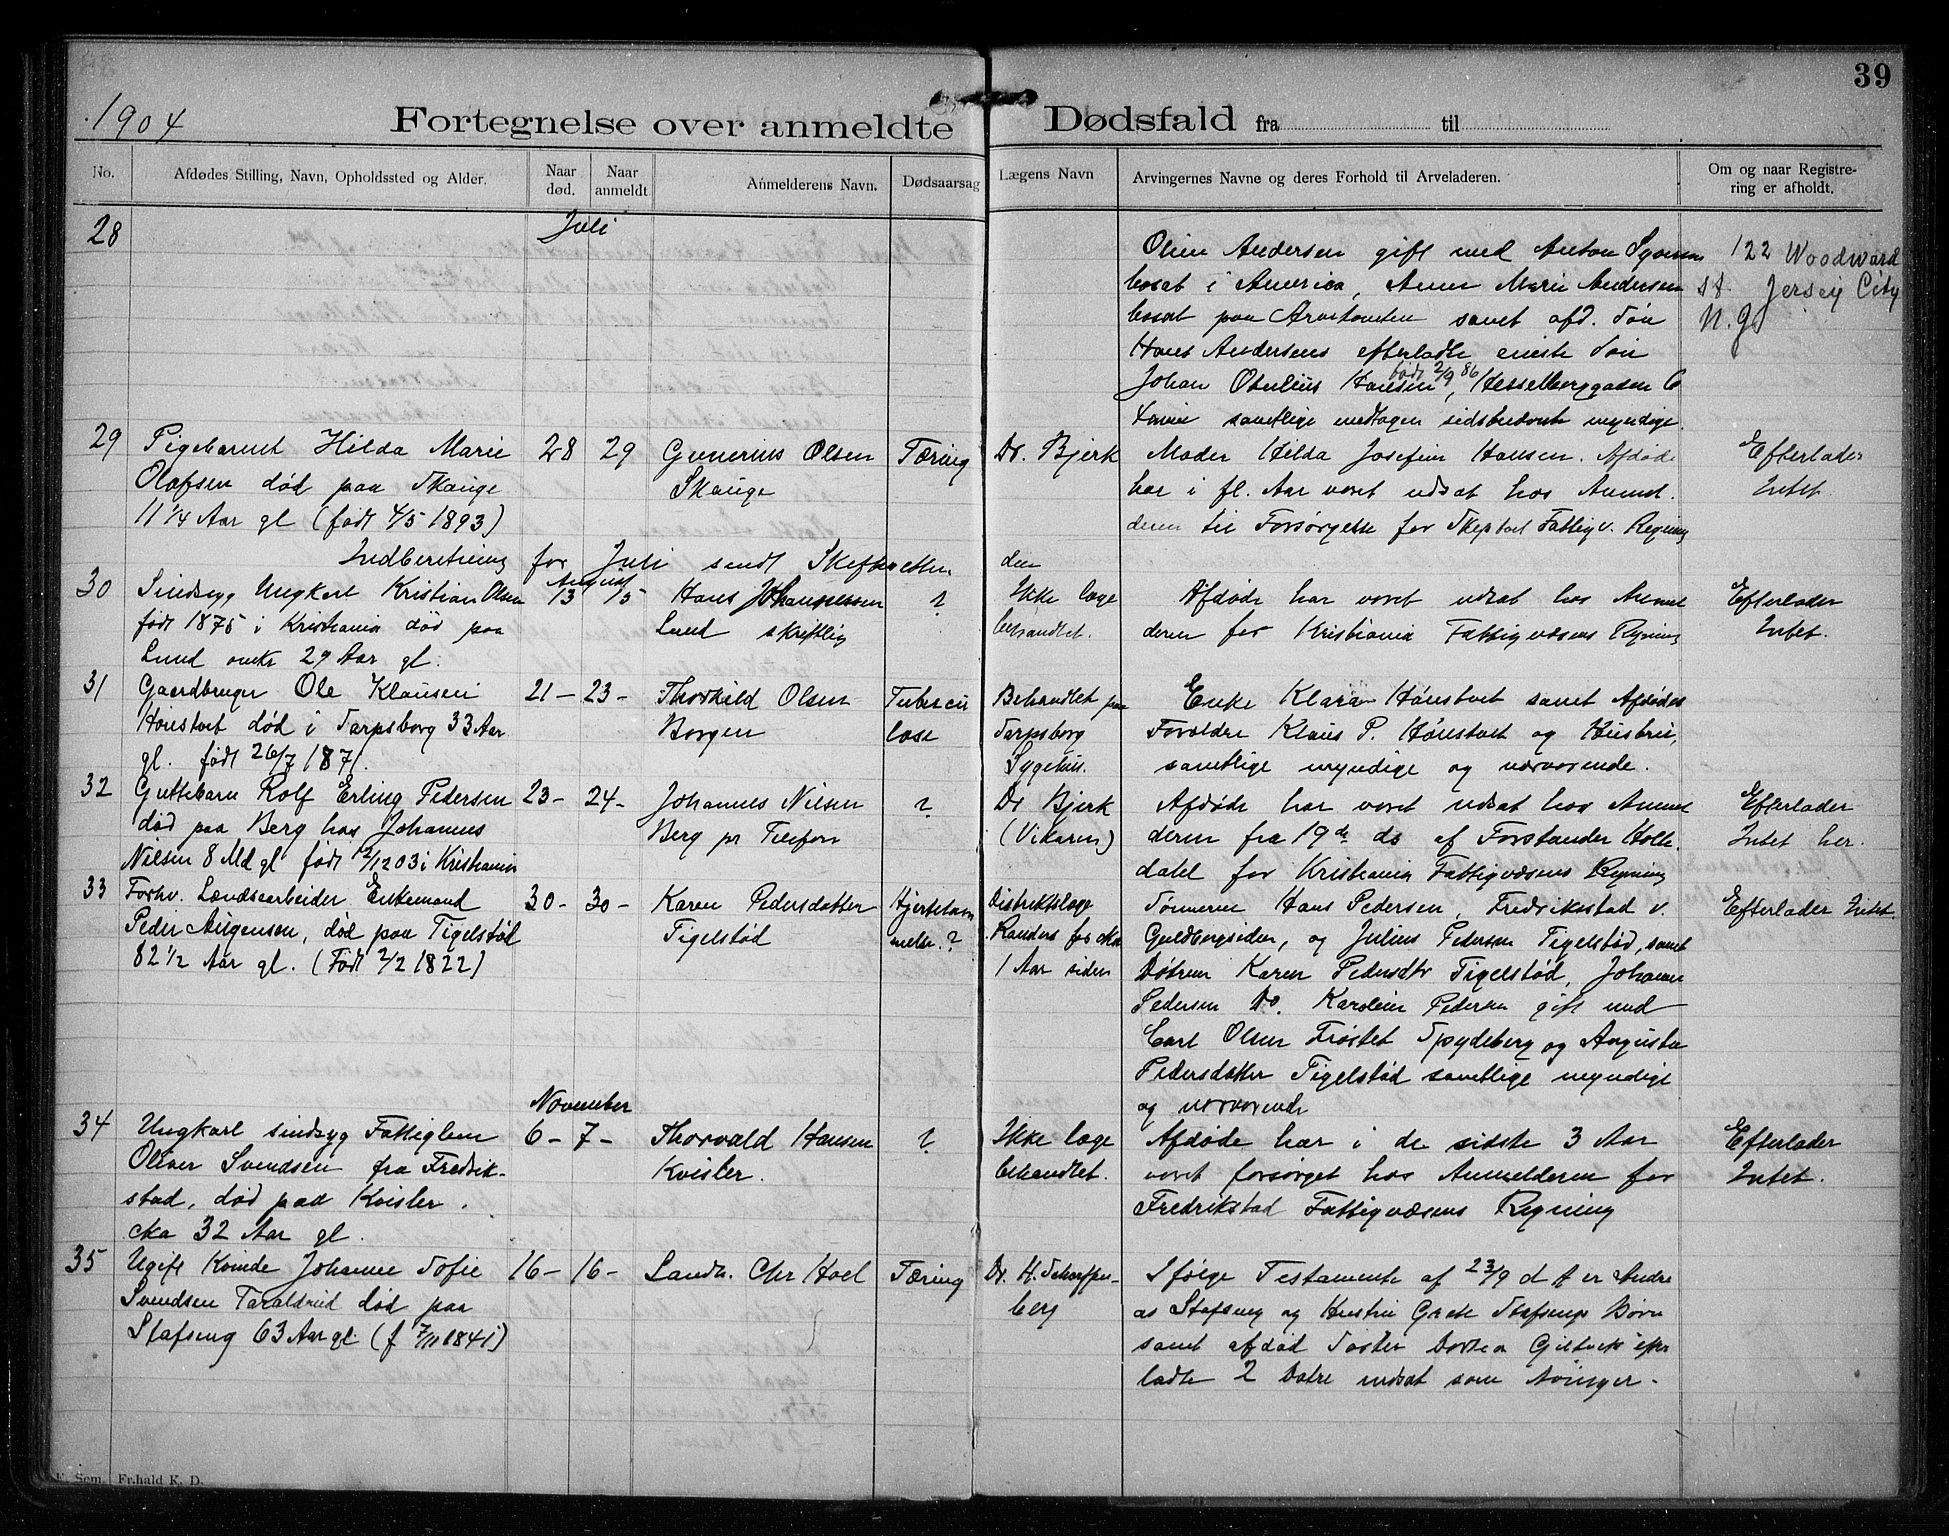 39
1904
Fortegnelse over anmeldte Dødsfald fra til
No. Afdødes Stilling, Navn, Opholdssted og Alder. Naar død. Naar anmeldt Anmelderens Navn. Dødsaarsag Lægens Navn Arvingernes Navne og deres Forhold til Arveladeren. Om og naar Registrering er afholdt.
28 Juli
Oline Andersen gift med Anton
bosat i America, Anne Marie Andersen
bosat paa samt afd. Søn
Hans Andersens efterladte eneste Søn
Johan Hansen, født 2/9 86 Hesselberggaden 6
samtlige undtagen sidstnævnte myndige.
122 Woodward
st. Jersey City
N. J.
29 Pigebarnet Hilda Marie
Olafsen død paa Skauge
11 1/4 Aar gl (født 4/5 1893)
28 29
Gunerius Olsen
Skauge
Tæring
Dr. Bjerk
Moder Hilda Josefine Hansen. Afdøde
har i fl. Aar været udsat hos Anmel.
deren til Forsørgelse for Skeptvet Fattigv. Regning
Efterlader
Intet.
Indberetning for Juli sendt Skifteretten
30 Sindsyg Ungkarl Kristian Olsen
født 1875 i Kristiania død paa
Lund omkr 29 Aar gl.
August
13 15
Hans Johannessen
Lund skriftlig
?
Ikke læge
behandlet.
Afdøde har været udsat hos Anmel
deren for Kristiania Fattigvæsens Regning
Efterlader
Intet.
31 Gaardbruger Ole Klausen
Hønstvet død i Sarpsborg 33 Aar
gl. født 26/7 1871.
21 – 23 –
Thorkild Olsen
Borgen
Tubercu
lose
Behandlet paa
Sarpsborg
Sygehus.
Enke Klara Hønstvet samt Afdødes
Forældre Klaus P. Hønstvet og Hustru,
samtlige myndige og nærværende.
32 Guttebarn Rolf Erling Pedersen
død paa Berg hos Johannes
Nilsen 8 Md gl født 12/12 03 i Kristiania
23 – 24 –
Johannes Nilsen
Berg pr Telefon
?
Dr Bjerk
(Vikaren)
Afdøde har været udsat hos Anmel
deren fra 19de ds af Forstander Holte
dalet for Kristiania Fattigvæsens Regning
Efterlader
Intet her.
33 Forhv. Landsearbeider Enkemand
Peder Augensen, død paa Tigelstød
82 1/2 Aar gl. (Født 2/2 1822)
30 – 30 –
Karen Pedersdatter
Tigelstød
Hjertelam
melse.?
Distriktslæge
Randers for cka
1 Aar siden
Sønnerne Hans Pedersen, Fredrikstad v.
Guldbergsiden, og Julius Pedersen Tigelstød, samt
Døtrene Karen Pedersdtr Tigelstød, Johanne
Pedersen Do. Karoline Pedersen gift med
Carl Olsen Frøstet Spydeberg og Augusta
Pedersdatter Tigelstød samtlige myndige
og nærværende
Efterlader Intet.
34 Ungkarl sindsyg Fattiglem
Oliver Svendsen fra Fredrik-
stad, død paa Kvisler.
cka 32 Aar gl.
November
6 – 7 –
Thorvald Hansen
Kvisler.
?
Ikke læge
behandlet.
Afdøde har i de sidste 3 Aar
været forsørget hos Anmelderen for
Fredrikstad Fattigvæsens Regning
Efterlader
Intet.
35 Ugift Kvinde Johanne Sofie
Svendsen Taraldrud død paa
Stafseng 63 Aar gl. (f 7/11 1841)
16 – 16 –
Landh. Chr Hoel
Tæring
Dr. H. Scharffen-
berg
Ifølge Testamente af 23/9 d A er Andre
as Stafseng og Hustru Grete Stafsengs Børn
samt afdød Søster Dortea efter
ladte 2 Døtre indsat som Arvinger.
E. Sem, Fr.hald K. D.